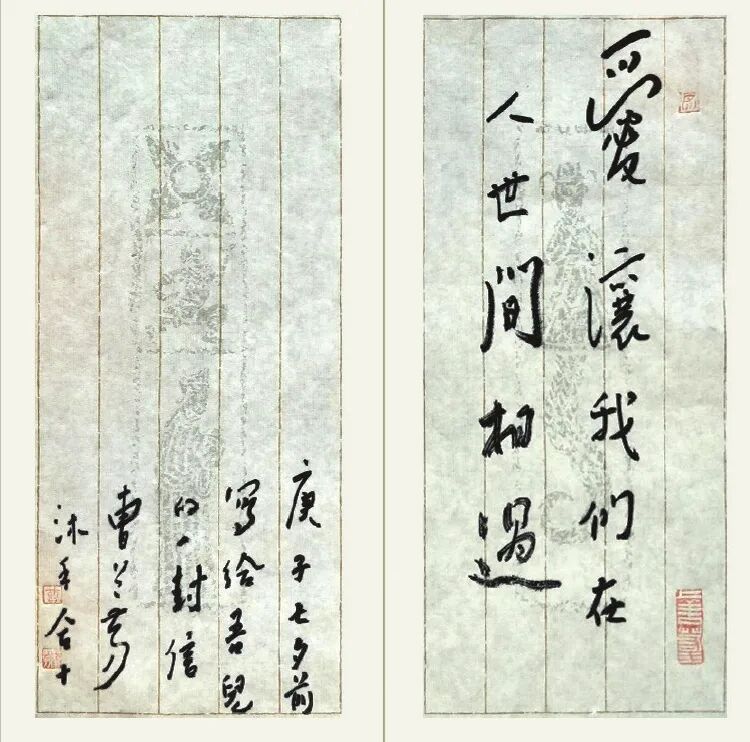 愛讓我們在
人世間相遇
庚子七夕前
寫給吾兒
的一封信
曹
沐手合十